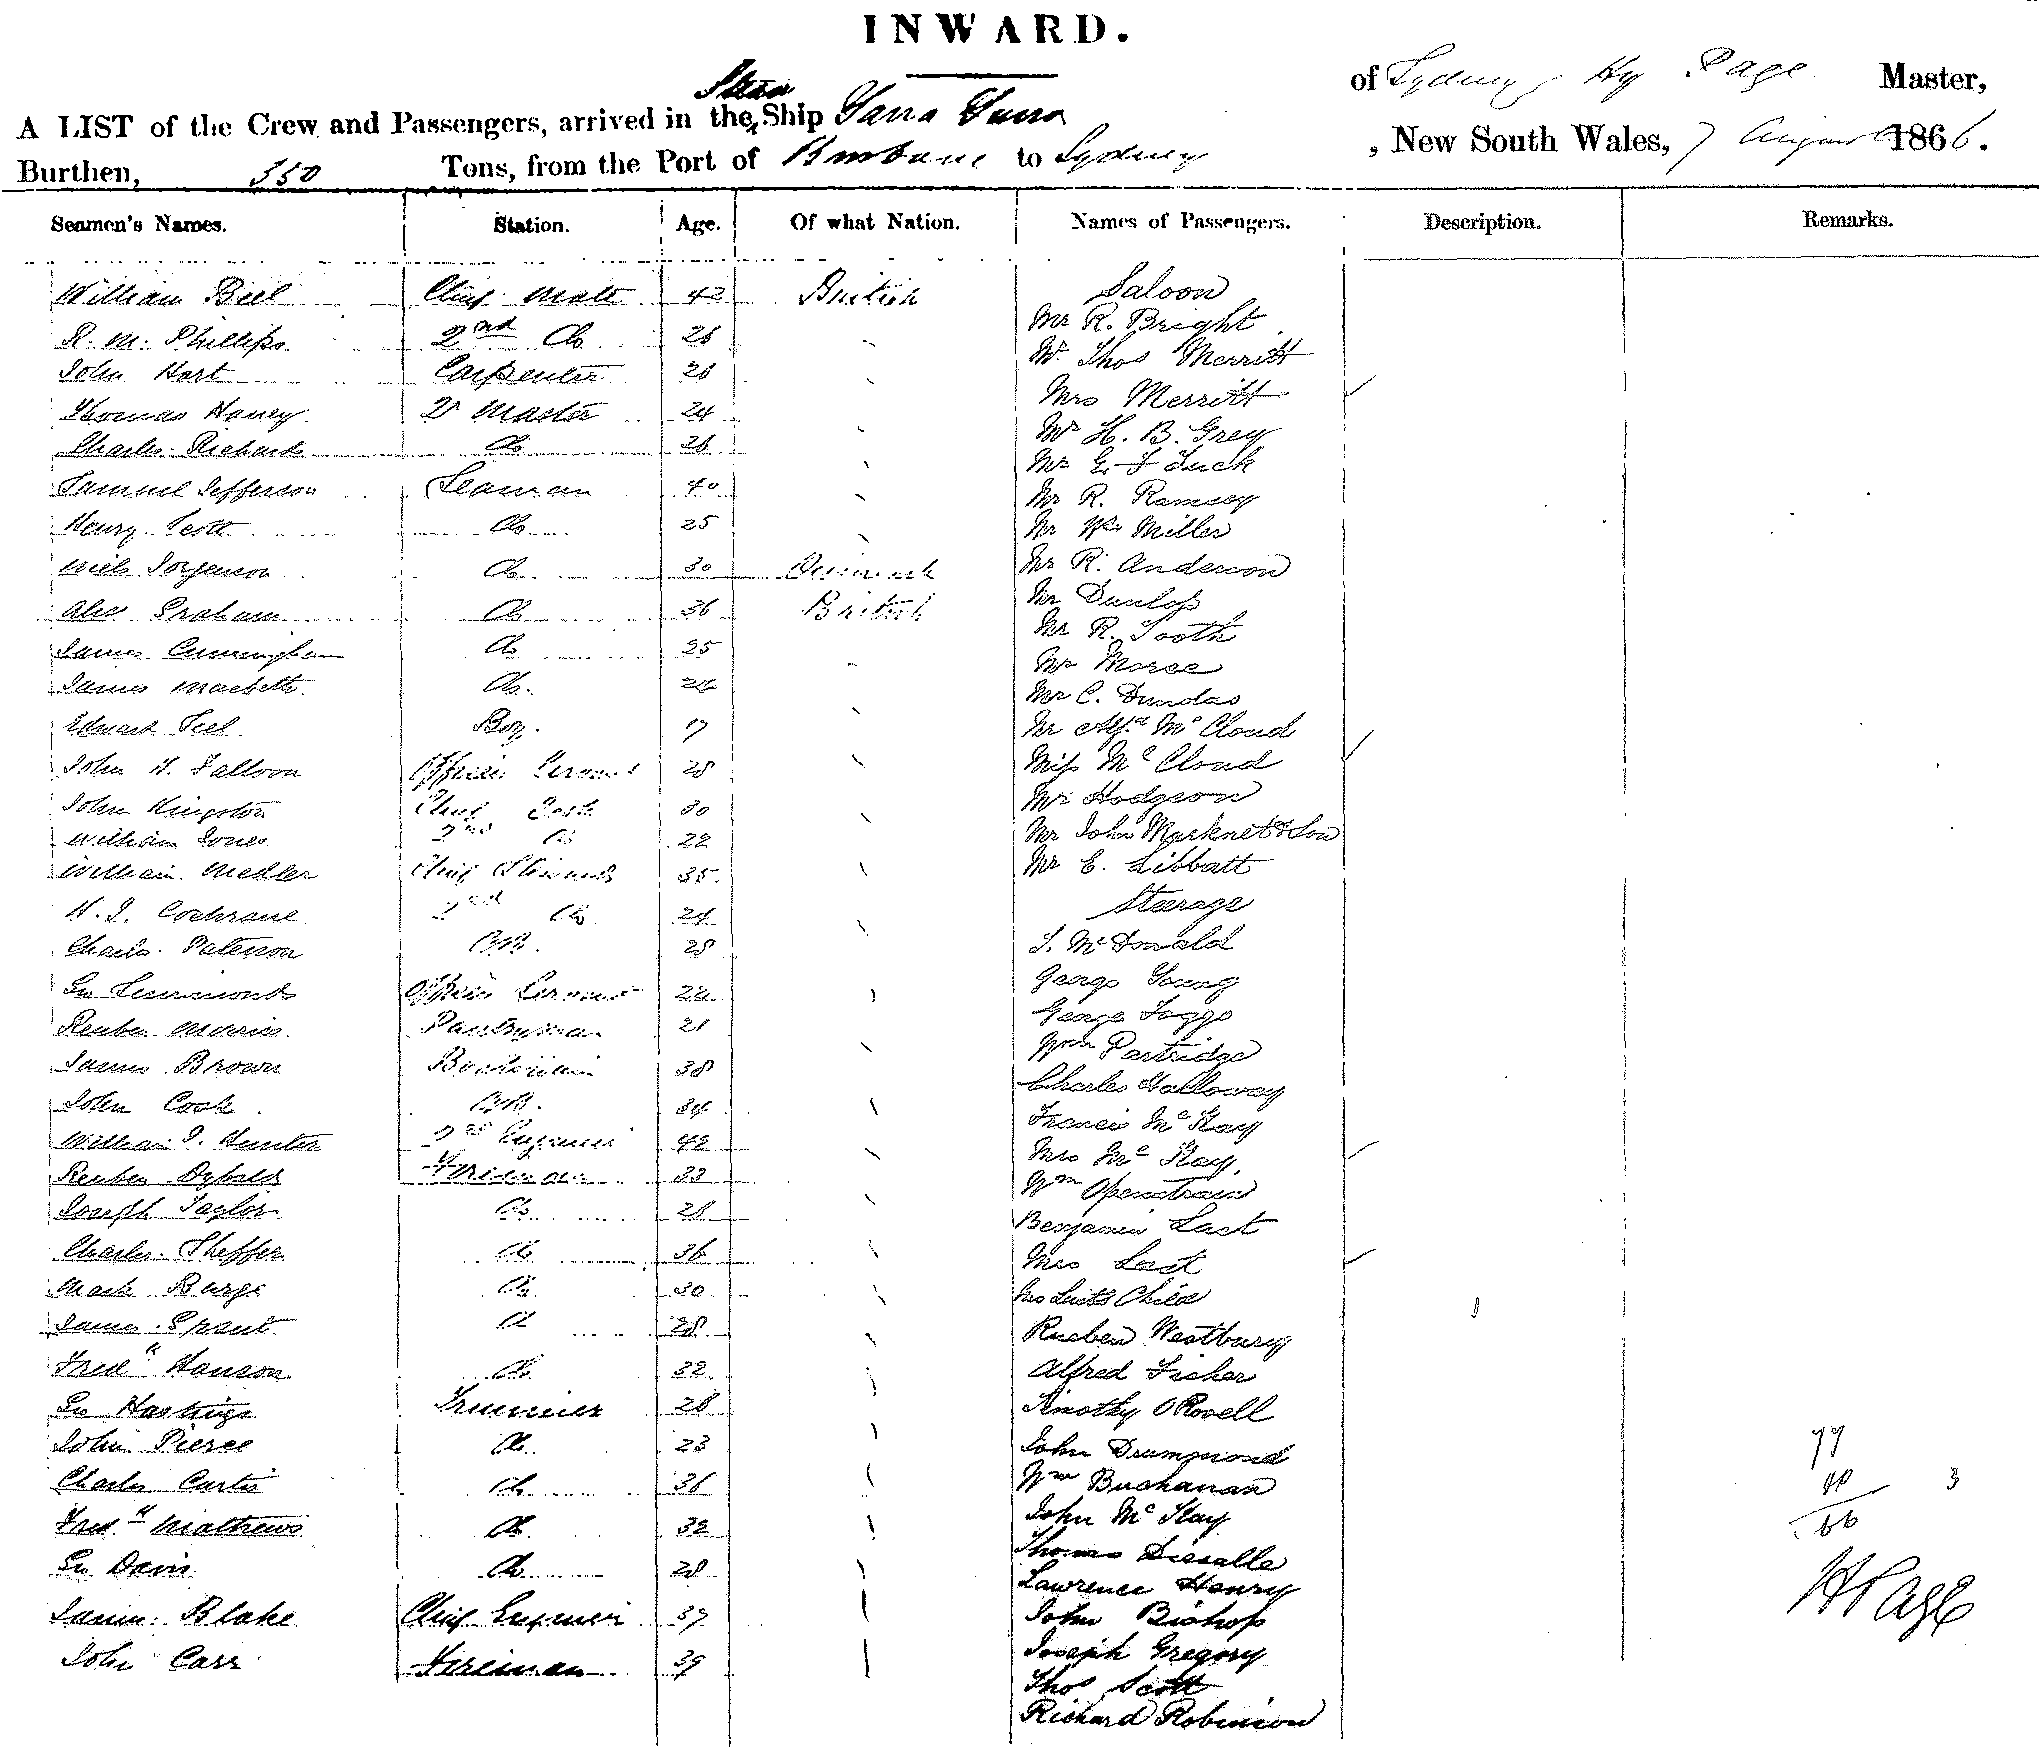 INWARD.
of Sydney, Hy Page Master,
A LIST of the Crew and Passengers, arrived in the Steam Ship Yarra Yarra
, New South Wales, 7 August 1866.
Burthen, 350 Tons, from the Port of Brisbane to Sydney
Seamen's Names. Station. Age. Of what Nation. Names of Passengers. Description. Remarks.
Saloon
William Biel Chief Mate 42 British
Mr R. Bright
R. M. Phillips 2nd Do 26
Mr Thos Merritt
John Hart Carpenter 26
Mrs Merritt
Thomas Haney Qr Master 24
Mr H. B. Grey
Charles Richards Do 26
Mr G. F Tuck
Samuel Jefferson Seaman 40
Mr R. Ramsey
Henry Scott Do 25
Mr Wm Miller
Niels Jorgenson Do 30 Denmark
Mr R. Anderson
Mr Dunlop
Alex Graham Do 36 British
Mr R. Tooth
James Cunningham Do 25
Mr Morce
James Macbeth Do 24
Mr C. Dundas
Edward Teel Boy. 17
Mr Alfd McCloud
John H. Falloon Officers Servant 28
Miss McCloud
Mr Hodgson
John Kingston Chief Cook 30
William Jones 2nd Do 22
Mr John Marknet & Son
William Meller Chief Steward 35
Mr E. Libbatt
H. J. Cochrane 2nd Do 24
Steerage
Charles Paterson 28
J. McDonald
George Young
Officers Servant 22
George Foggo
Reuben Morris Pantryman 21
Wm Partridge
James Brown 38
Charles Halloway
John Cook 34
Francis McKay
William J. Hunter 2nd Engineer 42
Mrs McKay.
Reuben Fireman 33
Wm Openstraw
Joseph Taylor Do 28
Benjamin Last
Charles Sheffer Do 36
Mrs Last
Mark Burge Do 30
Child
James Grant Do 28
Rueben Westbury
Fredk Hanson Do 32
Alfred Fisher
Geo Hastings Trimmer 28
Timothy ORovell
John Pierce Do 23
John Drummond
77
Charles Curtis Do 36
Wm Buchanan
3
John McKay
Fredk Mathews Do 32
66
Thomas
Geo Davis Do 28
Lawrence Henry
HPage
James Blake Chief Engineer 37
John Bishop
Joseph Gregory
John Carr Fireman 39
Thos Scott
Richard Robinson